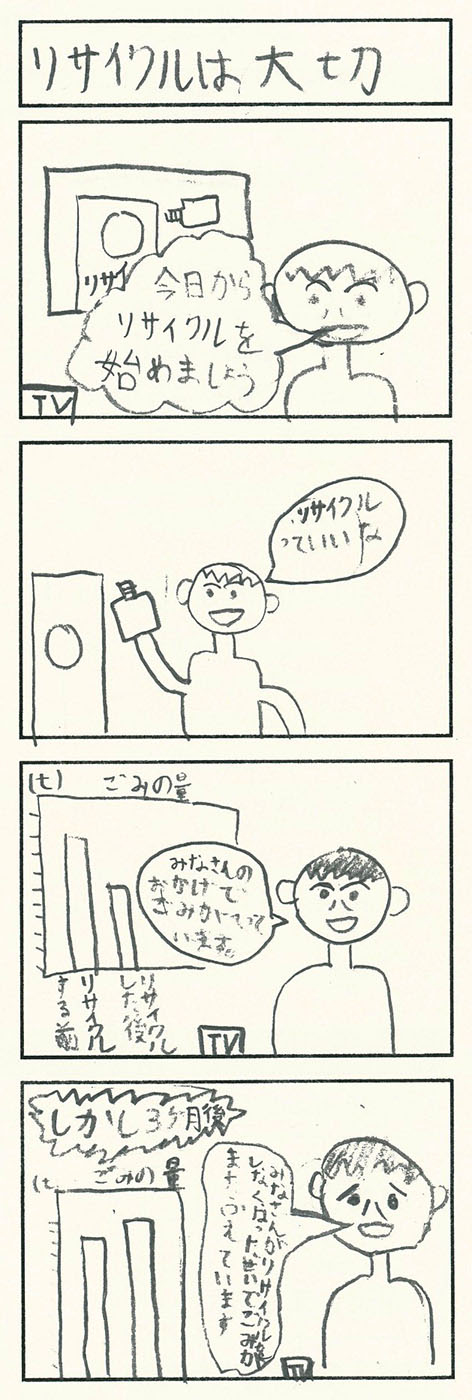 リサイクルは大切
リサイ
今日から
リサイクルを
始めましょう
TV
リサイクル
っていいな
(t)
ごみの量
みなさんの
おかげで
ごみがへって
います。
リサイクル
する前
リサイクル
した後
TV
しかし3ヶ月後
(t
ごみの量
みなさんがリサイクルを
しなくなったせいでごみが
ますふえています
TV